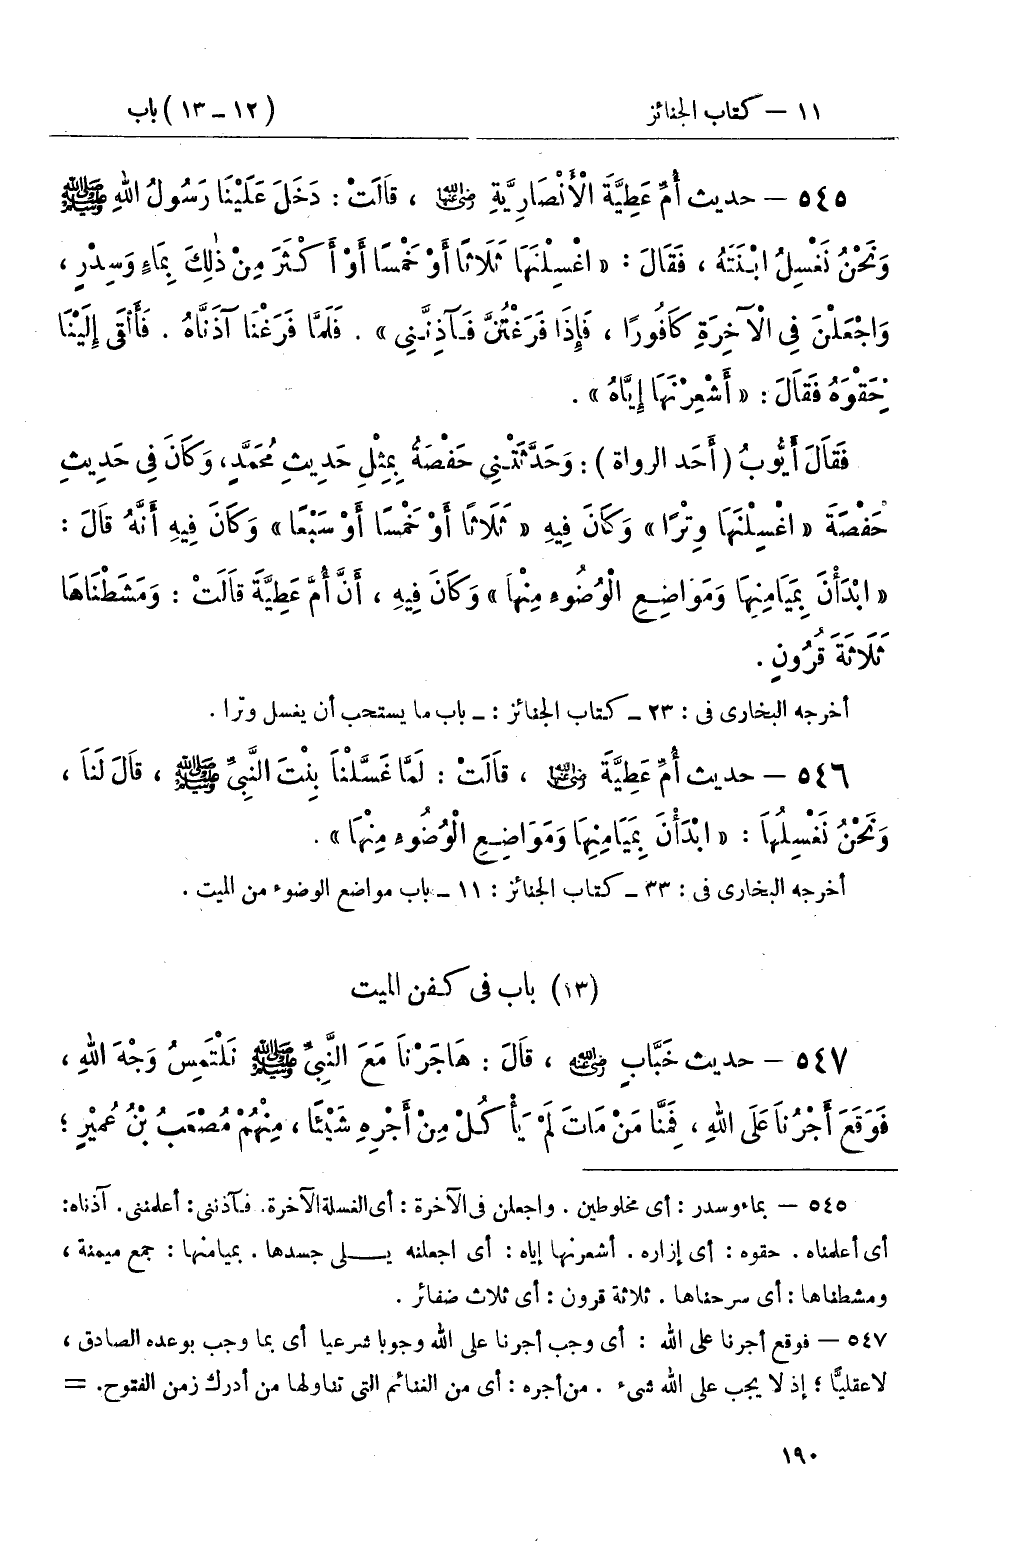 ١١ – كتاب الجنائز (١٢ – ١٣) باب
٥٤٥ – حديث أُمِّ عَطِيَّةَ الْأَنْصَارِيَّةِ رضي الله عنها ، قَالَتْ : دَخَلَ عَلَيْنَا رَسُولُ اللهِ ﷺ
وَنَحْنُ نَغْسِلُ ابْنَتَهُ ، فَقَالَ : « اغْسِلْنَهَا ثَلَاثًا أَوْ خَمْسًا أَوْ أَكْثَرَ مِنْ ذٰلِكَ بِمَاءٍ وَسِدْرٍ ،
وَاجْعَلْنَ فِي الْآخِرَةِ كَافُورًا ، فَإِذَا فَرَغْتُنَّ فَآذِنَّنِي » . فَلَمَّا فَرَغْنَا آذَنَّاهُ . فَأَلْقَى إِلَيْنَا
حِقْوَهُ فَقَالَ : « أَشْعِرْنَهَا إِيَّاهُ » .
فَقَالَ أَيُّوبُ ( أَحَد الرواة ) : وَحَدَّثَتْنِي حَفْصَةُ بِمِثْلِ حَدِيثِ مُحَمَّدٍ ، وَكَانَ فِي حَدِيثِ
حَفْصَةَ « اغْسِلْنَهَا وِتْرًا » وَكَانَ فِيهِ « ثَلَاثًا أَوْ خَمْسًا أَوْ سَبْعًا » وَكَانَ فِيهِ أَنَّهُ قَالَ :
« ابْدَأْنَ بِمَيَامِنِهَا وَمَوَاضِعِ الْوُضُوءِ مِنْهَا » وَكَانَ فِيهِ ، أَنَّ أُمَّ عَطِيَّةَ قَالَتْ : وَمَشَطْنَاهَا
ثَلَاثَةَ قُرُونٍ .
أخرجه البخارى فى : ٢٣ – كتاب الجنائز : – باب ما يستحب أن يغسل وترا .
٥٤٦ – حديث أُمِّ عَطِيَّةَ رضي الله عنها ، قَالَتْ : لَمَّا غَسَّلْنَا بِنْتَ النَّبِيِّ ﷺ ، قَالَ لَنَا ،
وَنَحْنُ نَغْسِلُهَا : « ابْدَأْنَ بِمَيَامِنِهَا وَمَوَاضِعِ الْوُضُوءِ مِنْهَا » .
أخرجه البخارى فى : ٣٣ – كتاب الجنائز : ١١ – باب مواضع الوضوء من الميت .
(١٣) باب فى كفن الميت
٥٤٧ – حديث خَبَّابٍ رضي الله عنه ، قَالَ : هَاجَرْنَا مَعَ النَّبِيِّ ﷺ نَلْتَمِسُ وَجْهَ اللهِ ،
فَوَقَعَ أَجْرُنَا عَلَى اللهِ ، فَمِنَّا مَنْ مَاتَ لَمْ يَأْكُلْ مِنْ أَجْرِهِ شَيْئًا ، مِنْهُمْ مُصْعَبُ بْنُ عُمَيْرٍ ؛
٥٤٥ – بماء وسدر : أى مخلوطين . واجعلن فى الآخرة : أى الغسلة الآخرة. فآذننى : أعلمننى . آذناه :
أى أعلمناه . حقوه : أى إزاره . أشعرنها إياه : أى اجعلنه يــلى جسدها . بميامنها : جمع ميمنة ،
ومشطناها : أى سرحناها . ثلاثة قرون : أى ثلاث ضفائر .
٥٤٧ – فوقع أجرنا على الله : أى وجب أجرنا على الله وجوبا شرعيا أى بما وجب بوعده الصادق ،
لا عقليًّا ؛ إذ لا يجب على الله شىء . من أجره : أى من الغنائم التى تناولها من أدرك زمن الفتوح. =
١٩٠